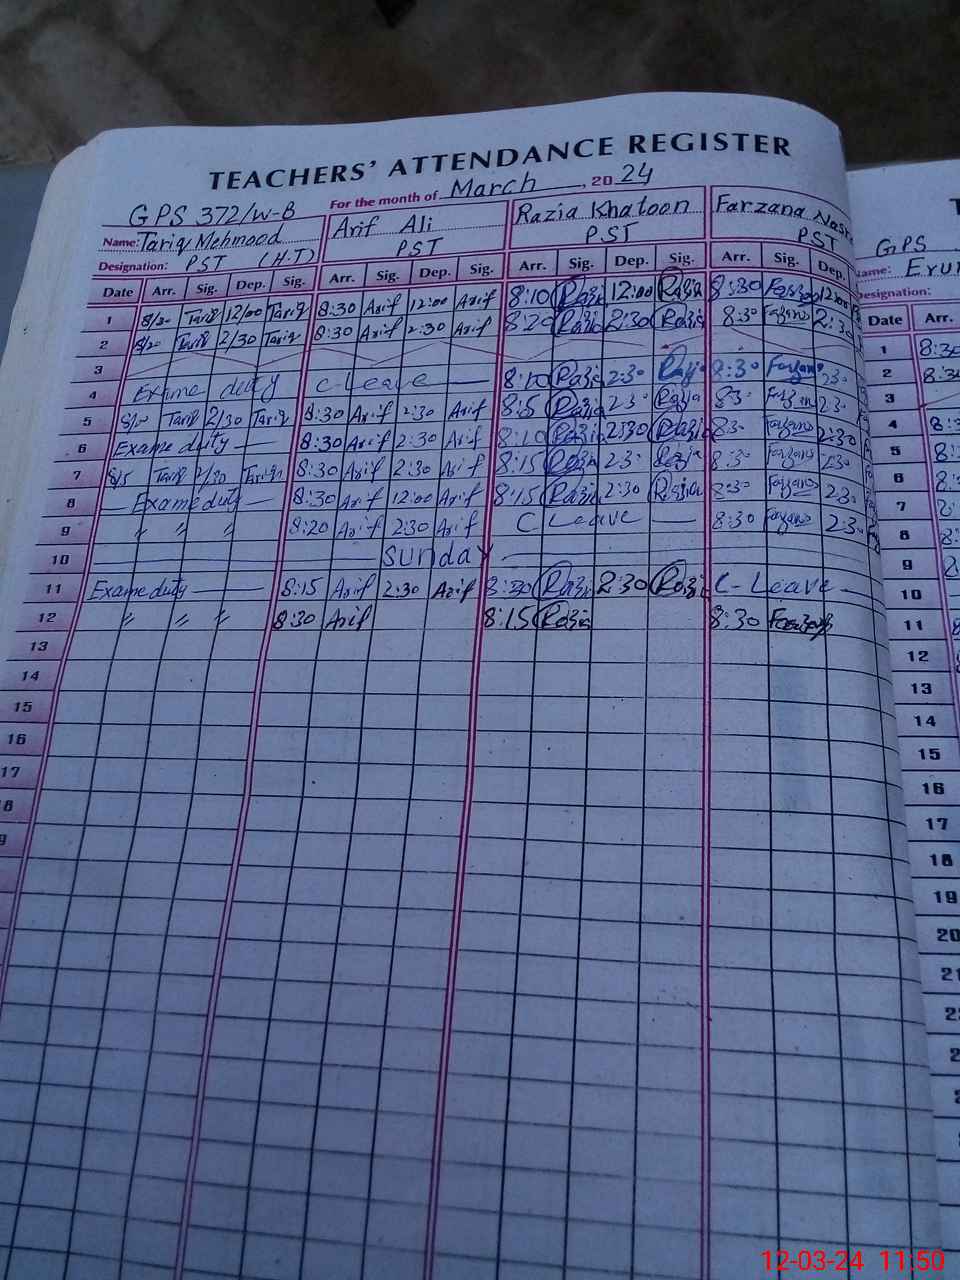 TEACHERS' ATTENDANCE REGISTER
For the month of March, 20 24
GPS 372/W-B
Name: Tariq Mehmood Arif Ali Razia Khatoon Farzana
Designation: PST (H.T) PST PST PST
Date Arr. Sig. Dep. Sig. Arr. Sig. Dep. Sig. Arr. Sig. Dep. Sig. Arr. Sig. Dep.
1 8/20 Tariq 12/00 Tariq 8:30 Arif 12:00 Arif 8:10 Razia 12:00 Razia 8:30
2 8/20 Tariq 2/30 Tariq 8:30 Arif 2:30 Arif 8:20 Razia 2:30 Razia 8:30
3
4 Exame duty C-Leave 8:10 Razia 2:30 Razia 8:30
5 Tariq 2/30 Tariq 8:30 Arif 2:30 Arif 8:15 Razia 2:30 Razia
6 Exame duty 8:30 Arif 2:30 Arif 8:10 Razia 2:30 Razia 2:30
7 8/15 Tariq 2/30 Tariq 8:30 Arif 2:30 Arif 8:15 Razia 2:30 Razia
8 Exame duty 8:30 Arif 12:00 Arif 8:15 Razia 2:30 Razia
9 〃 〃 〃 8:20 Arif 2:30 Arif C Leave 8:30
10 Sunday
11 Exame duty 8:15 Arif 2:30 Arif 8:30 Razia 2:30 Razia C-Leave
12 〃 〃 〃 8:30 Arif 8:15 Razia 8:30
13
14
15
16
17
18
9
GPS
Name:
Designation:
Date Arr.
1 8:30
2
3
4
5
6
7
8
9
10
11
12
13
14
15
16
17
18
19
20
21
12-03-24 11:50